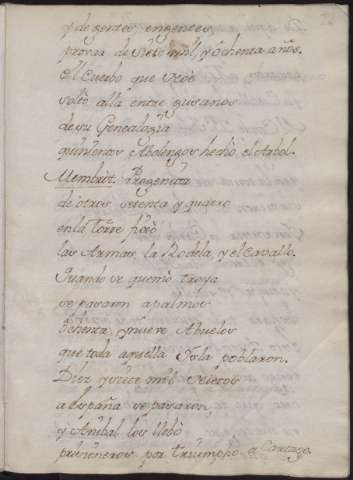 y de gentes, en gentes,
prova de siete mill, y ochenta años.
El Cuerbo que
soltò allà entre gusanos
de su Genealogia
quinientos Abolengos hechò el Arbol.
Membrot Progenitor
de otros setenta y quatro
en la Torre
las Armas, la Rodela, y el Cavallo.
Quando se quemò troya
se pasaron a palmos
ochenta, y nueve Abuelos
que toda aquella Ysla poblaron.
Diez y siete mil
a españa se pasaron
y Anibal los llebò
prisioneros por triumpho a Cartago.